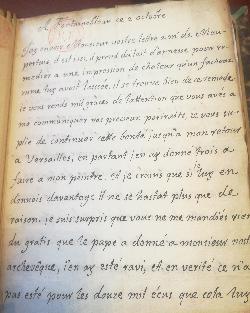 A Fontainebleau ce 2 octobre
J'ay envoyé Monsieur vostre lettre a mr de Mau-
pertuis il est icy, il prend du lait d'anesse pour re
medier a une impression de chaleur qu'un facheux
rume luy avoit laissée. Il se trouve bien de ce remede.
je vous rends mil graces de l'attention que vous avés a
me communiquer vos precieux portraits. je vous su-
plie de continuer cette bonté jusqu'a mon retour
a Versailles, en partant j'en ay donné trois a
faire a mon peintre. et je crains que si j'luy en
donnois davantage il ne se hastat plus que de
raison. je suis surpris que vous ne me mandiés rien
du gratis que le pape a donné a monsieur nostre
archevêque, j'en ay esté ravi, et en verité ce n'a
pas esté pour les douze mil écus que cela luy